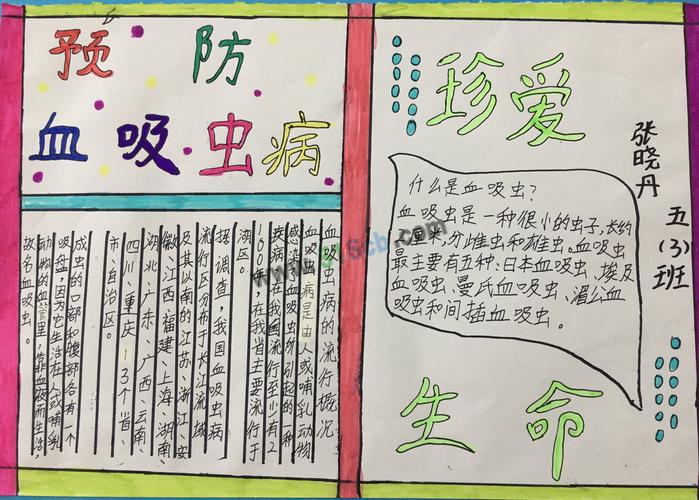 预防
血吸虫病
血吸虫病的流行概况
血吸虫病是由人或哺乳动物
感染血吸虫所引起的一种
疾病，在我国流行至少有2
100年，在我省主要流行于
湖区。
据调查，我国血吸虫病
流行区分布于长江流域
及其以南的江苏、浙江、安
徽、江西、福建、上海、湖南、
湖北、广东、广西、云南
四川、重庆13个省、
市、自治区。
成虫的口部和腹部各有一个
吸盘，因为它生活在人或哺乳
动物的血管里，靠血液而生活，
故名血吸虫。
珍爱
张晓丹 五(3)班
什么是血吸虫？
血吸虫是一种很小的虫子，长约
1厘米，分雌虫和雄虫。血吸虫
最主要有五种：日本血吸虫、埃及
血吸虫、曼氏血吸虫、湄公血
吸虫和间插血吸虫。
生命